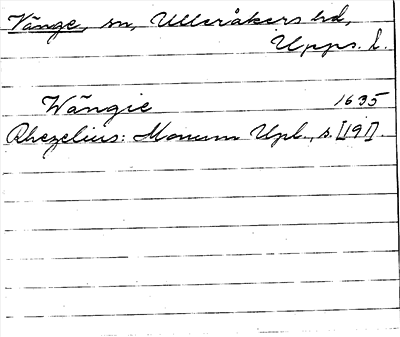 Vänge, sn, Ulleråkers hd,
Upps. L.
Wängie 1635
Rhezelius: Monum Upl., s. [191].